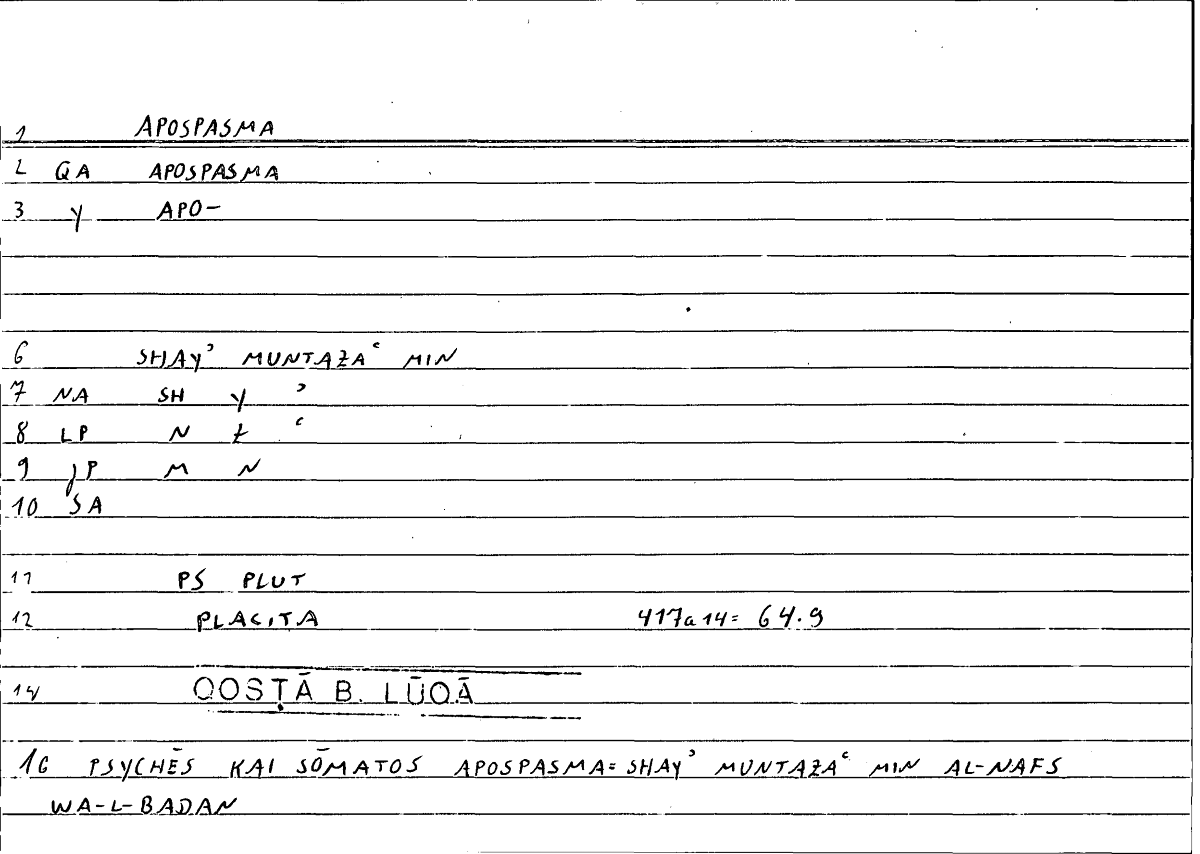 1 APOSPASMA
2 QA APOSPASMA
3 Y APO-
6 SHAYʾ MUNTAZAʿ MIN
7 NA SH Y ʾ
8 LP N Z ʿ
9 JP M N
10 SA
11 PS PLUT
12 PLACITA 417a14= 64.9
14 QOSṬĀ B. LŪQĀ
16 PSYCHĒS KAI SŌMATOS APOSPASMA= SHAYʾ MUNTAZAʿ MIN AL-NAFS
WA-L-BADAN